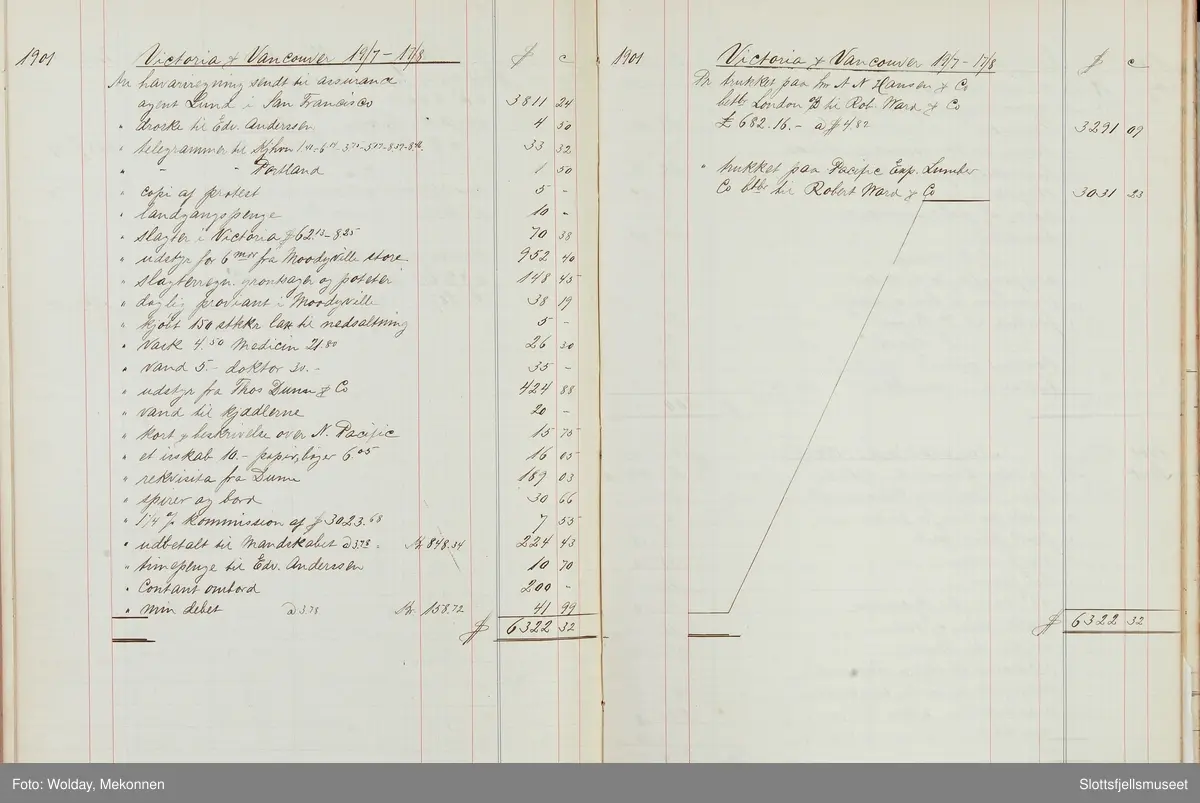 1901 Victoria & Vancouver 19/7 – 17/8 $ c
An havariregning sendt til assurance
agent Lund i San Francisco 3811 24
" droske til Edv. Anderssen 4 50
" telegrammer til Kjhvn 33 32
" – " – Portland 1 50
" copi af protest 5 -
" landgangspenge 10 -
" slagter i Victoria $ 62.13 – 8.25 70 38
" udstyr for 6 mdr fra Moodyville store 952 40
" slagterregn. grøntsager og poteter 148 45
" daglig proviant i Moodyville 38 19
" kjøbt 150 stkkr lax til nedsaltning 5 -
" vask 4.50 Medicin 21.80 26 30
" vand 5.- doktor 30.- 35 -
" udstyr fra Thos Dunn & Co 424 88
" vand til kjædlerne 20 -
" kort & beskrivelse over N. Pacific 15 75
" et isskab 10.- papir, bøger 6.05 16 05
" rekvisita fra Dunn 189 03
" spirer og bord 30 66
" 1/4 % Kommission af $ 3023.68 7 55
" udbetalt til Mandskabet à 3.78 Kr. 848.34 224 43
" timepenge til Edv. Anderssen 10 70
" Contant ombord 200 -
" min debet à 3.78 Kr. 158.72 41 99
$ 6322 32
1901 Victoria & Vancouver 19/7 – 17/8 $ c
Pr trukket paa hr A N Hansen & Co
London til Rob. Ward & Co
£ 682.16.- à $ 4.82 3291 09
" trukket paa Pacific Exp. Lumber
Co til Robert Ward & Co 3031 23
$ 6322 32
Foto: Wolday, Mekonnen
Slottsfjellsmuseet